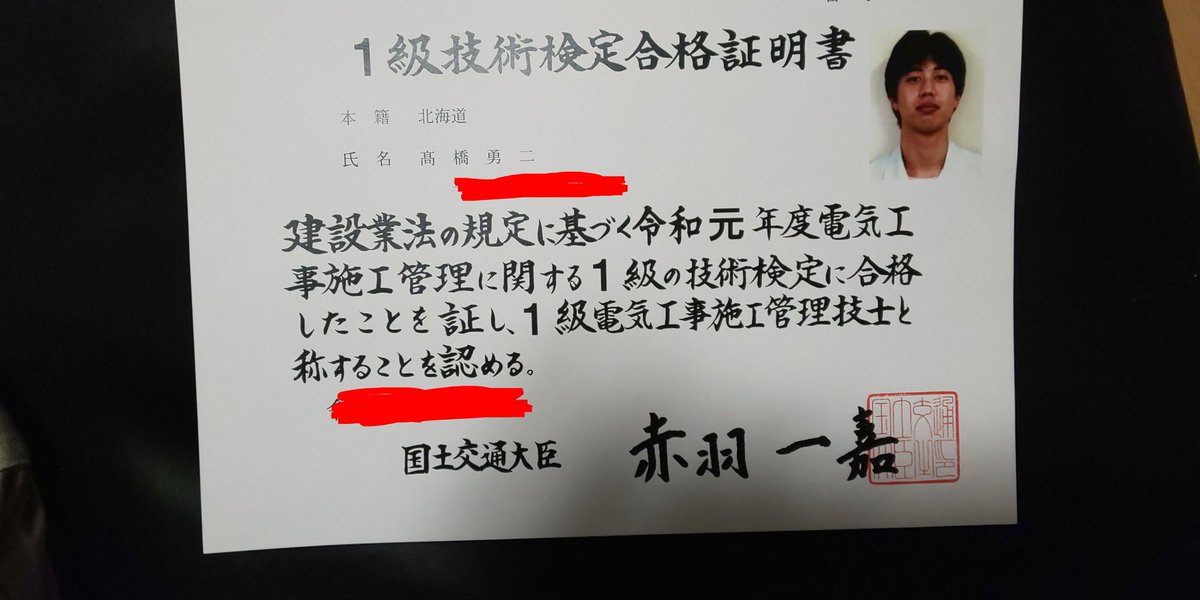 1級技術検定合格証明書
本籍 北海道
氏名 髙橋勇二
建設業法の規定に基づく令和元年度電気工
事施工管理に関する1級の技術検定に合格
したことを証し、1級電気工事施工管理技士と
称することを認める。
国土交通大臣 赤羽一嘉